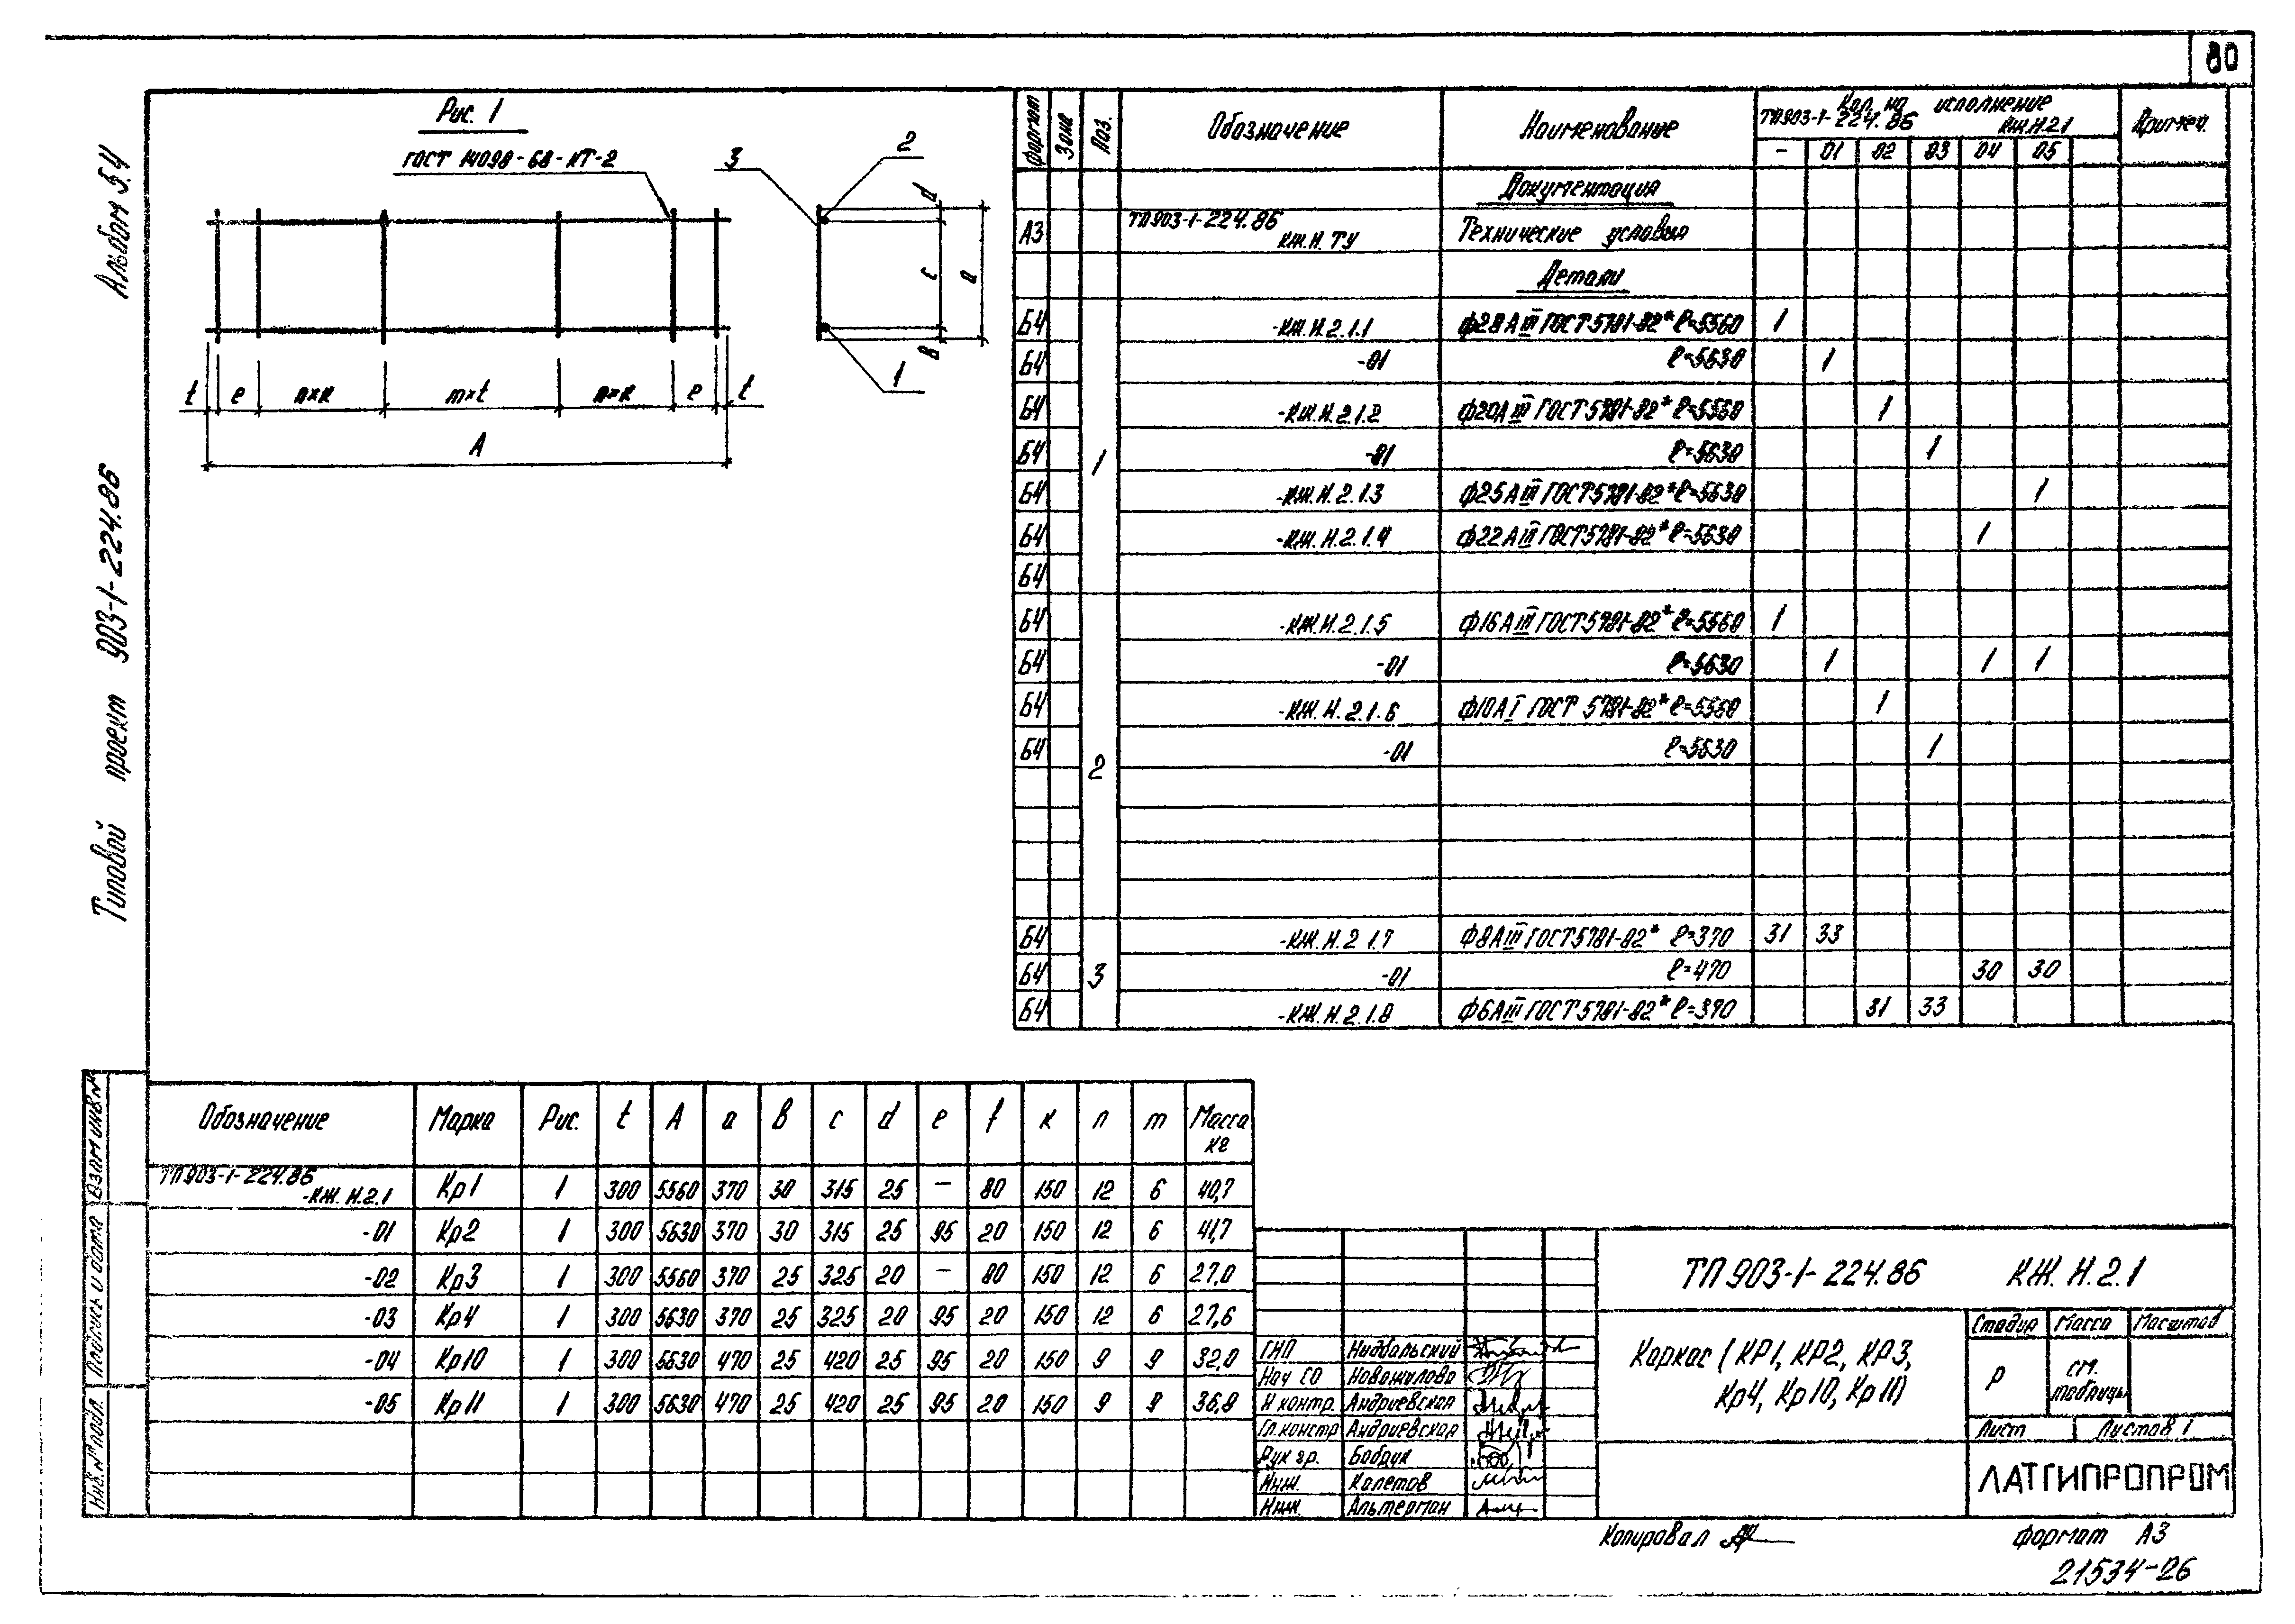 80
Альбом 5.4
Типовой проект 903-1-224.86
Рис. 1
ГОСТ 14098-68-КТ-2
3
2
1
d
c
a
в
t
e
n×к
m×t
n×к
e
t
A
Формат Зона Поз. Обозначение Наименование Кол. на исполнение ТП903-1-224.86 КЖ.Н.2.1 Примеч.
- 01 02 03 04 05
Документация
А3 ТП903-1-224.86 КЖ.Н.ТУ Технические условия
Детали
Б4 -КЖ.Н.2.1.1 ф28АIII ГОСТ5781-82* ℓ=5560 1
Б4 -01 ℓ=5630 1
Б4 -КЖ.Н.2.1.2 ф20АIII ГОСТ5781-82* ℓ=5560 1
Б4 1 -01 ℓ=5630 1
Б4 -КЖ.Н.2.1.3 ф25АIII ГОСТ5781-82* ℓ=5630 1
Б4 -КЖ.Н.2.1.4 ф22АIII ГОСТ5781-82* ℓ=5630 1
Б4
Б4 -КЖ.Н.2.1.5 ф16АIII ГОСТ5781-82* ℓ=5560 1
Б4 -01 ℓ=5630 1 1 1
Б4 -КЖ.Н.2.1.6 ф10АI ГОСТ 5781-82* ℓ=5560 1
Б4 2 -01 ℓ=5630 1
Б4 -КЖ.Н.2 1.7 ф8АIII ГОСТ5781-82* ℓ=370 31 33
Б4 3 -01 ℓ=470 30 30
Б4 -КЖ.Н.2.1.8 ф6АIII ГОСТ5781-82* ℓ=370 31 33
Обозначение Марка Рис. t A a в c d e f к n m Масса кг
ТП903-1-224.86 -КЖ.Н.2.1 Кр1 1 300 5560 370 30 315 25 — 80 150 12 6 40,7
-01 Кр2 1 300 5630 370 30 315 25 95 20 150 12 6 41,7
-02 Кр3 1 300 5560 370 25 325 20 — 80 150 12 6 27,0
-03 Кр4 1 300 5630 370 25 325 20 95 20 150 12 6 27,6
-04 Кр10 1 300 5630 470 25 420 25 95 20 150 9 9 32,0
-05 Кр11 1 300 5630 470 25 420 25 95 20 150 9 9 36,8
Взам инв.№
Подпись и дата
Инв.№ подл.
ТП 903-1-224.86 КЖ.Н.2.1
Каркас (КР1, КР2, КР3,
Кр4, Кр10, Кр11)
Стадия Масса Масштаб
Р см. таблицы
Лист Листов 1
ЛАТГИПРОПРОМ
ГИП Нидбальский
Нач СО Новожилова
Н контр. Андриевская
Гл.констр Андриевская
Рук гр. Бобрук
Инж. Калетов
Инж. Альтерман
Копировал
формат А3
21534-26